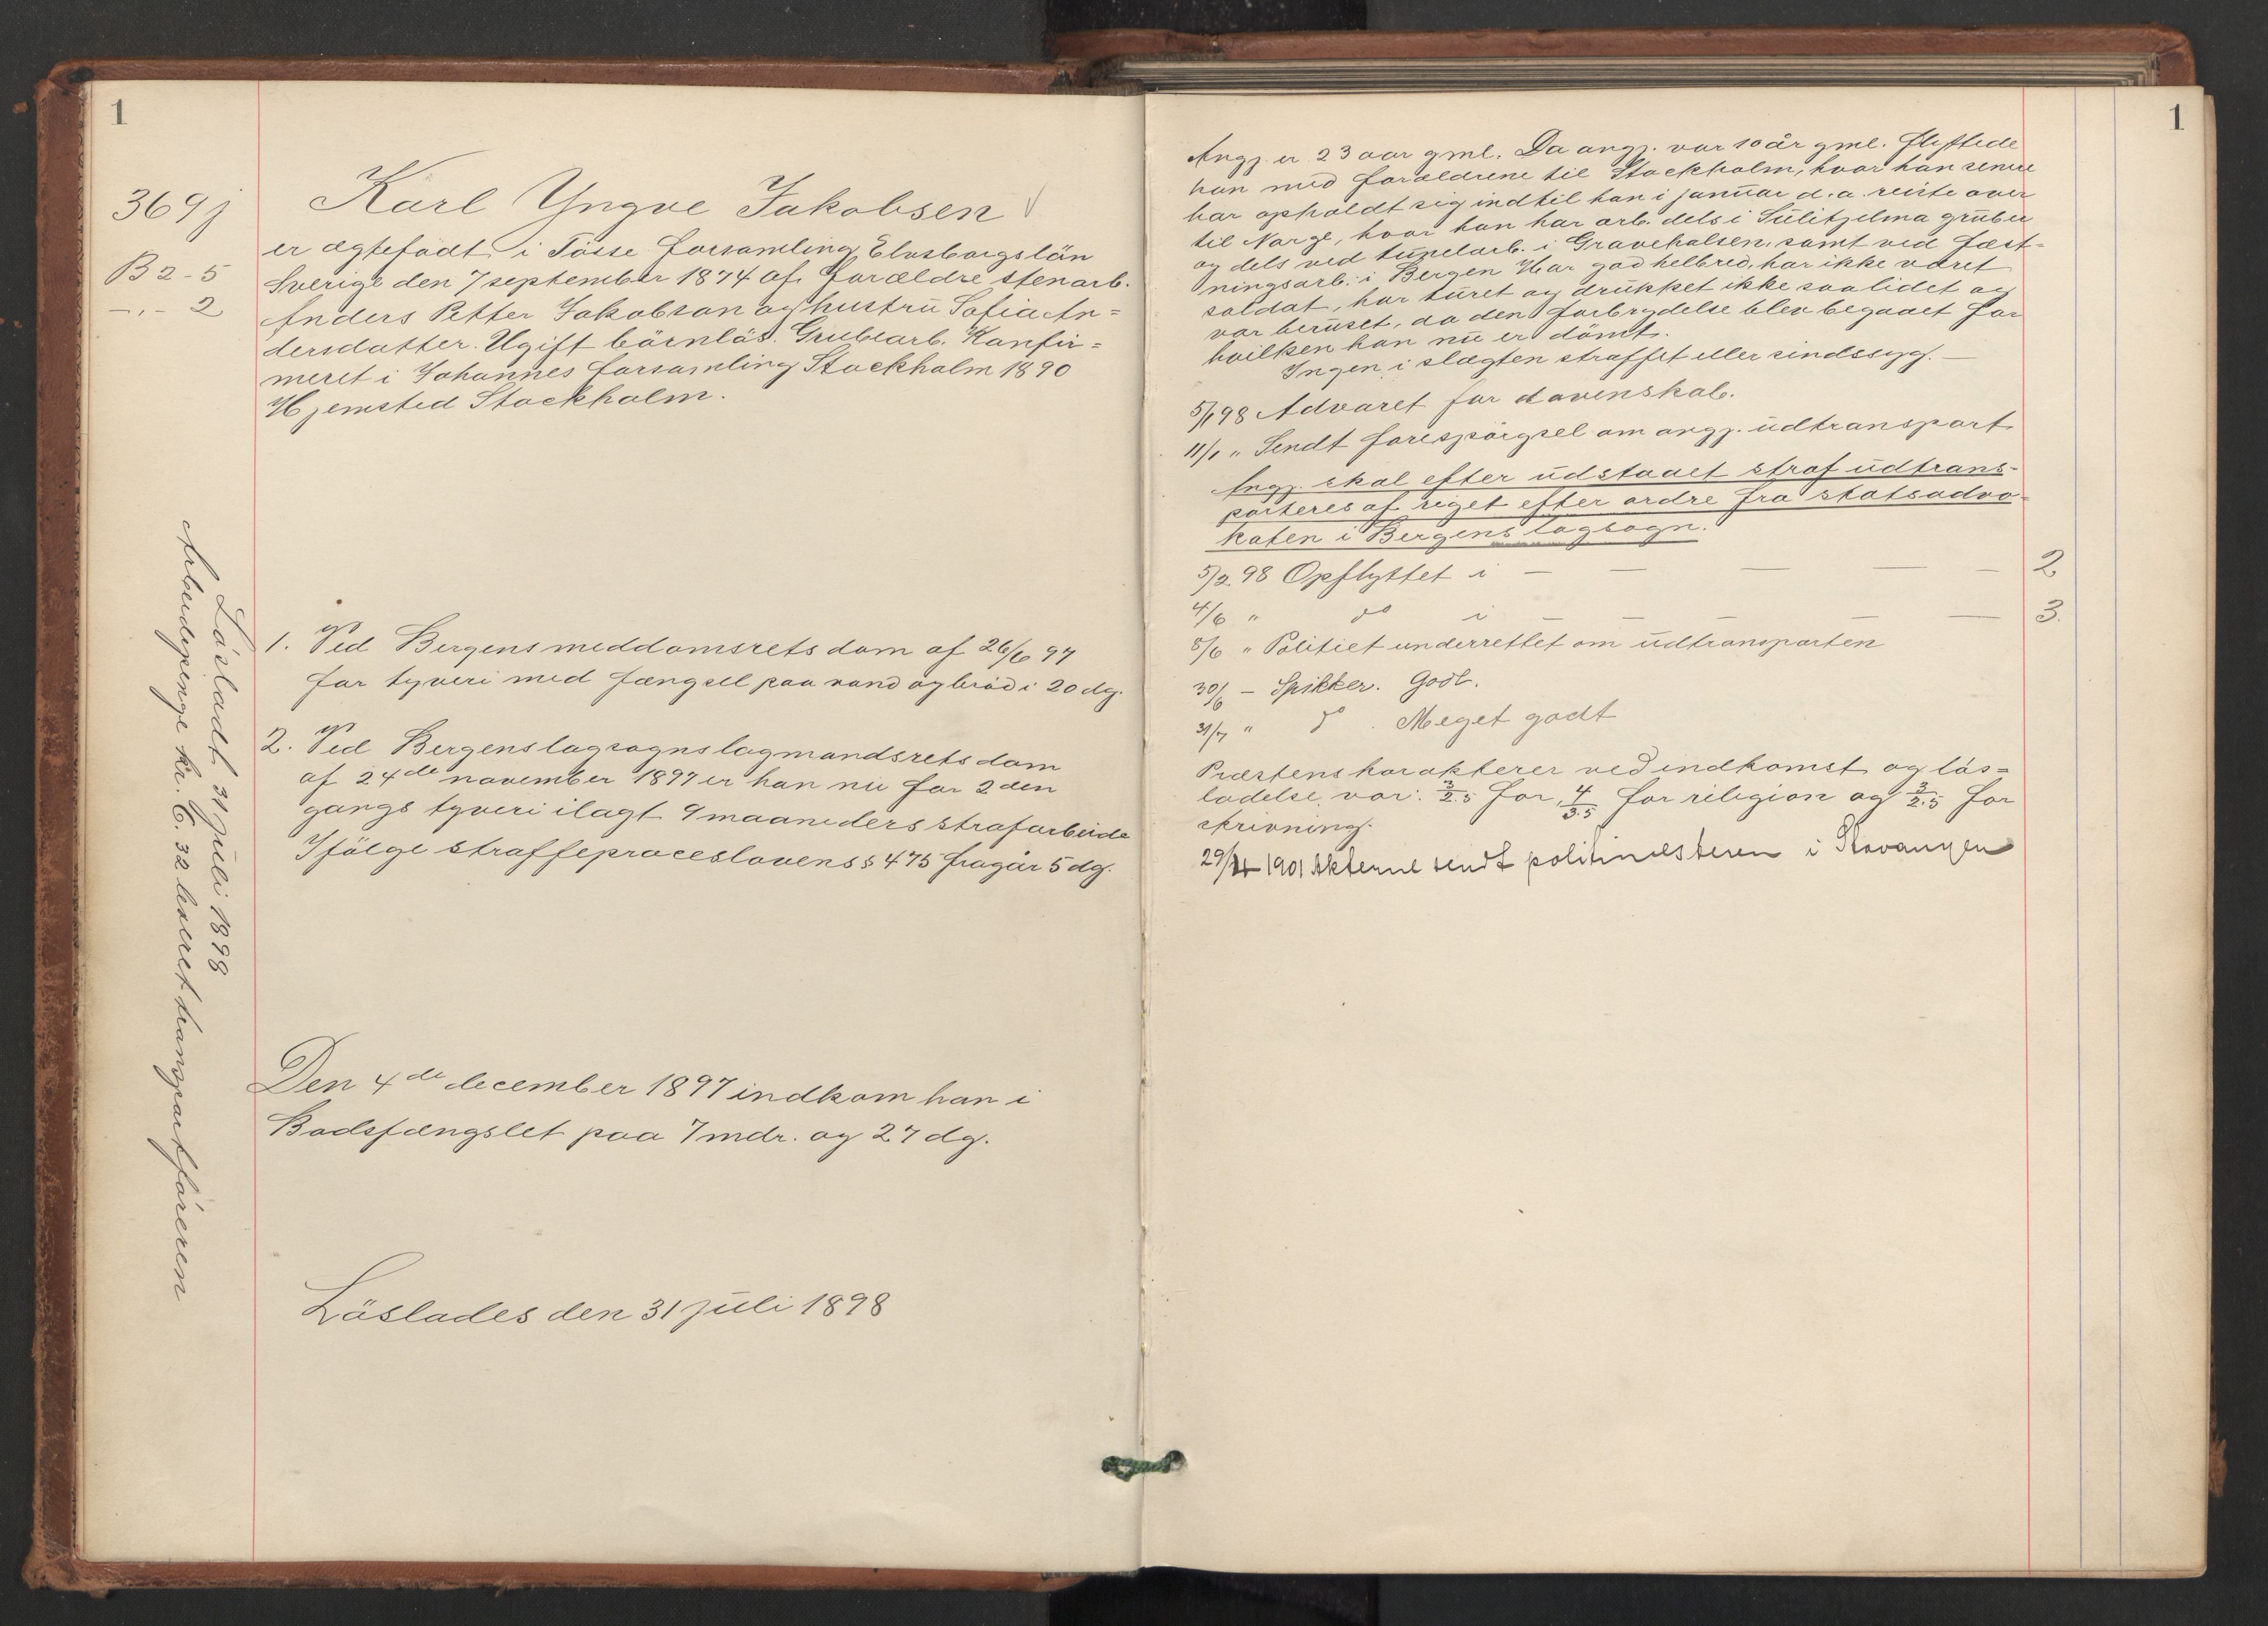 1
369j
B 2-5
-„- 2
Karl Yngve Jakobsen
er ægtefödt i Tösse forsamling Elvsborgslän
Sverige den 7 september 1874 af forældre stenarb.
Anders Petter Jakobson og hustrü Sofia An=
dersdatter. Ugift börnlös. Grubearb. Konfir=
meret i Johannes forsamling Stockholm 1890
Hjemsted Stockholm.
1. Ved Bergens meddomsrets dom af 26/6 97
for tyveri med fængsel paa vand og bröd i 20 dg.
2. Ved Bergens lagsogns lagmandsrets dom
af 24de november 1897 er han nü for 2den
gangs tyveri ilagt 9 maaneders strafarbeide
Ifölge straffeproceslovens § 475 fragår 5 dg.
Den 4de december 1897 indkom han i
Bodsfængslet paa 7 mdr. og 27 dg.
Löslades den 31 jüli 1898
Lösladt 31 jüli 1898
Arbeidspenge kr. 6.32 leveret transportföreren
1
Angj. er 23 aar gml. Da angj. var 10 år gml. flyttede
han med forældrene til Stockholm, hvor han senere
har opholdt sig indtil han i janüar d.a. reiste over
til Norge, hvor han har arb. dels i Sülitjelma grüber
og dels ved tünelarb. i Gravehalsen, samt ved fæst-
ningsarb. i Bergen Har god helbred, har ikke været
soldat, har türet og drükket ikke saa lidet og
var berüset, da den forbrydelse blev begaaet for
hvilken han nü er dömt.
Ingen i slægten straffet eller sindssyg. —
5/1 98 Advaret for dovenskab.
11/1 „ Sendt forespörgsel om angj. üdtransport
Angj. skal efter üdstaaet straf üdtrans-
porteres af riget efter ordre fra statsadvo-
katen i Bergens lagsogn.
5/2 98 Opflyttet i — — — — — 2
4/6 „ do i — — — — 3.
8/6 „ Politiet underrettet om üdtransporten
30/6 — Spikker. Godt.
31/7 „ do . Meget godt
Præstens karakterer ved indkomst og lös=
ladelse var: 3/2.5 for, 4/3.5 for religion og 3/2.5 for
skrivning.
1901 Akterne sendt politimesteren i Stavanger